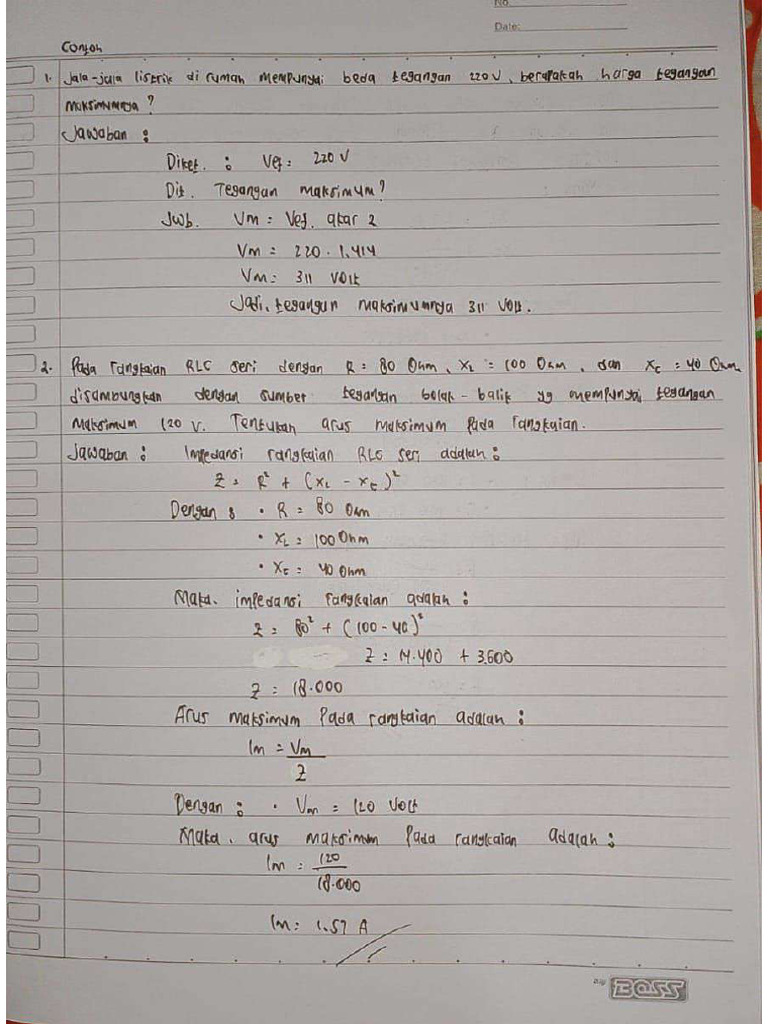 No
Date:
Contoh
1. Jala-jala listrik di rumah mempunyai beda tegangan 220 V, berapakah harga tegangan
maksimumnya?
Jawaban :
Diket. : Vef = 220 V
Dit. Tegangan maksimum?
Jwb. Vm = Vef. akar 2
Vm = 220 . 1,414
Vm = 311 Volt
Jadi, tegangan maksimumnya 311 Volt.
2. Pada rangkaian RLC seri dengan R = 80 Ohm, XL = 100 Ohm, dan Xc = 40 Ohm
disambungkan dengan sumber tegangan bolak-balik yg mempunyai tegangan
maksimum 120 V. Tentukan arus maksimum pada rangkaian.
Jawaban : Impedansi rangkaian RLC seri adalah :
Z = R² + (XL - Xc)²
Dengan : • R = 80 Ohm
• XL = 100 Ohm
• Xc = 40 Ohm
Maka, impedansi rangkaian adalah :
Z = 80² + (100-40)²
Z = 14.400 + 3.600
Z = 18.000
Arus maksimum pada rangkaian adalah :
Im = Vm
Z
Dengan : • Vm = 120 Volt
Maka, arus maksimum pada rangkaian adalah :
Im = 120
18.000
Im = 1,57 A
BOSS